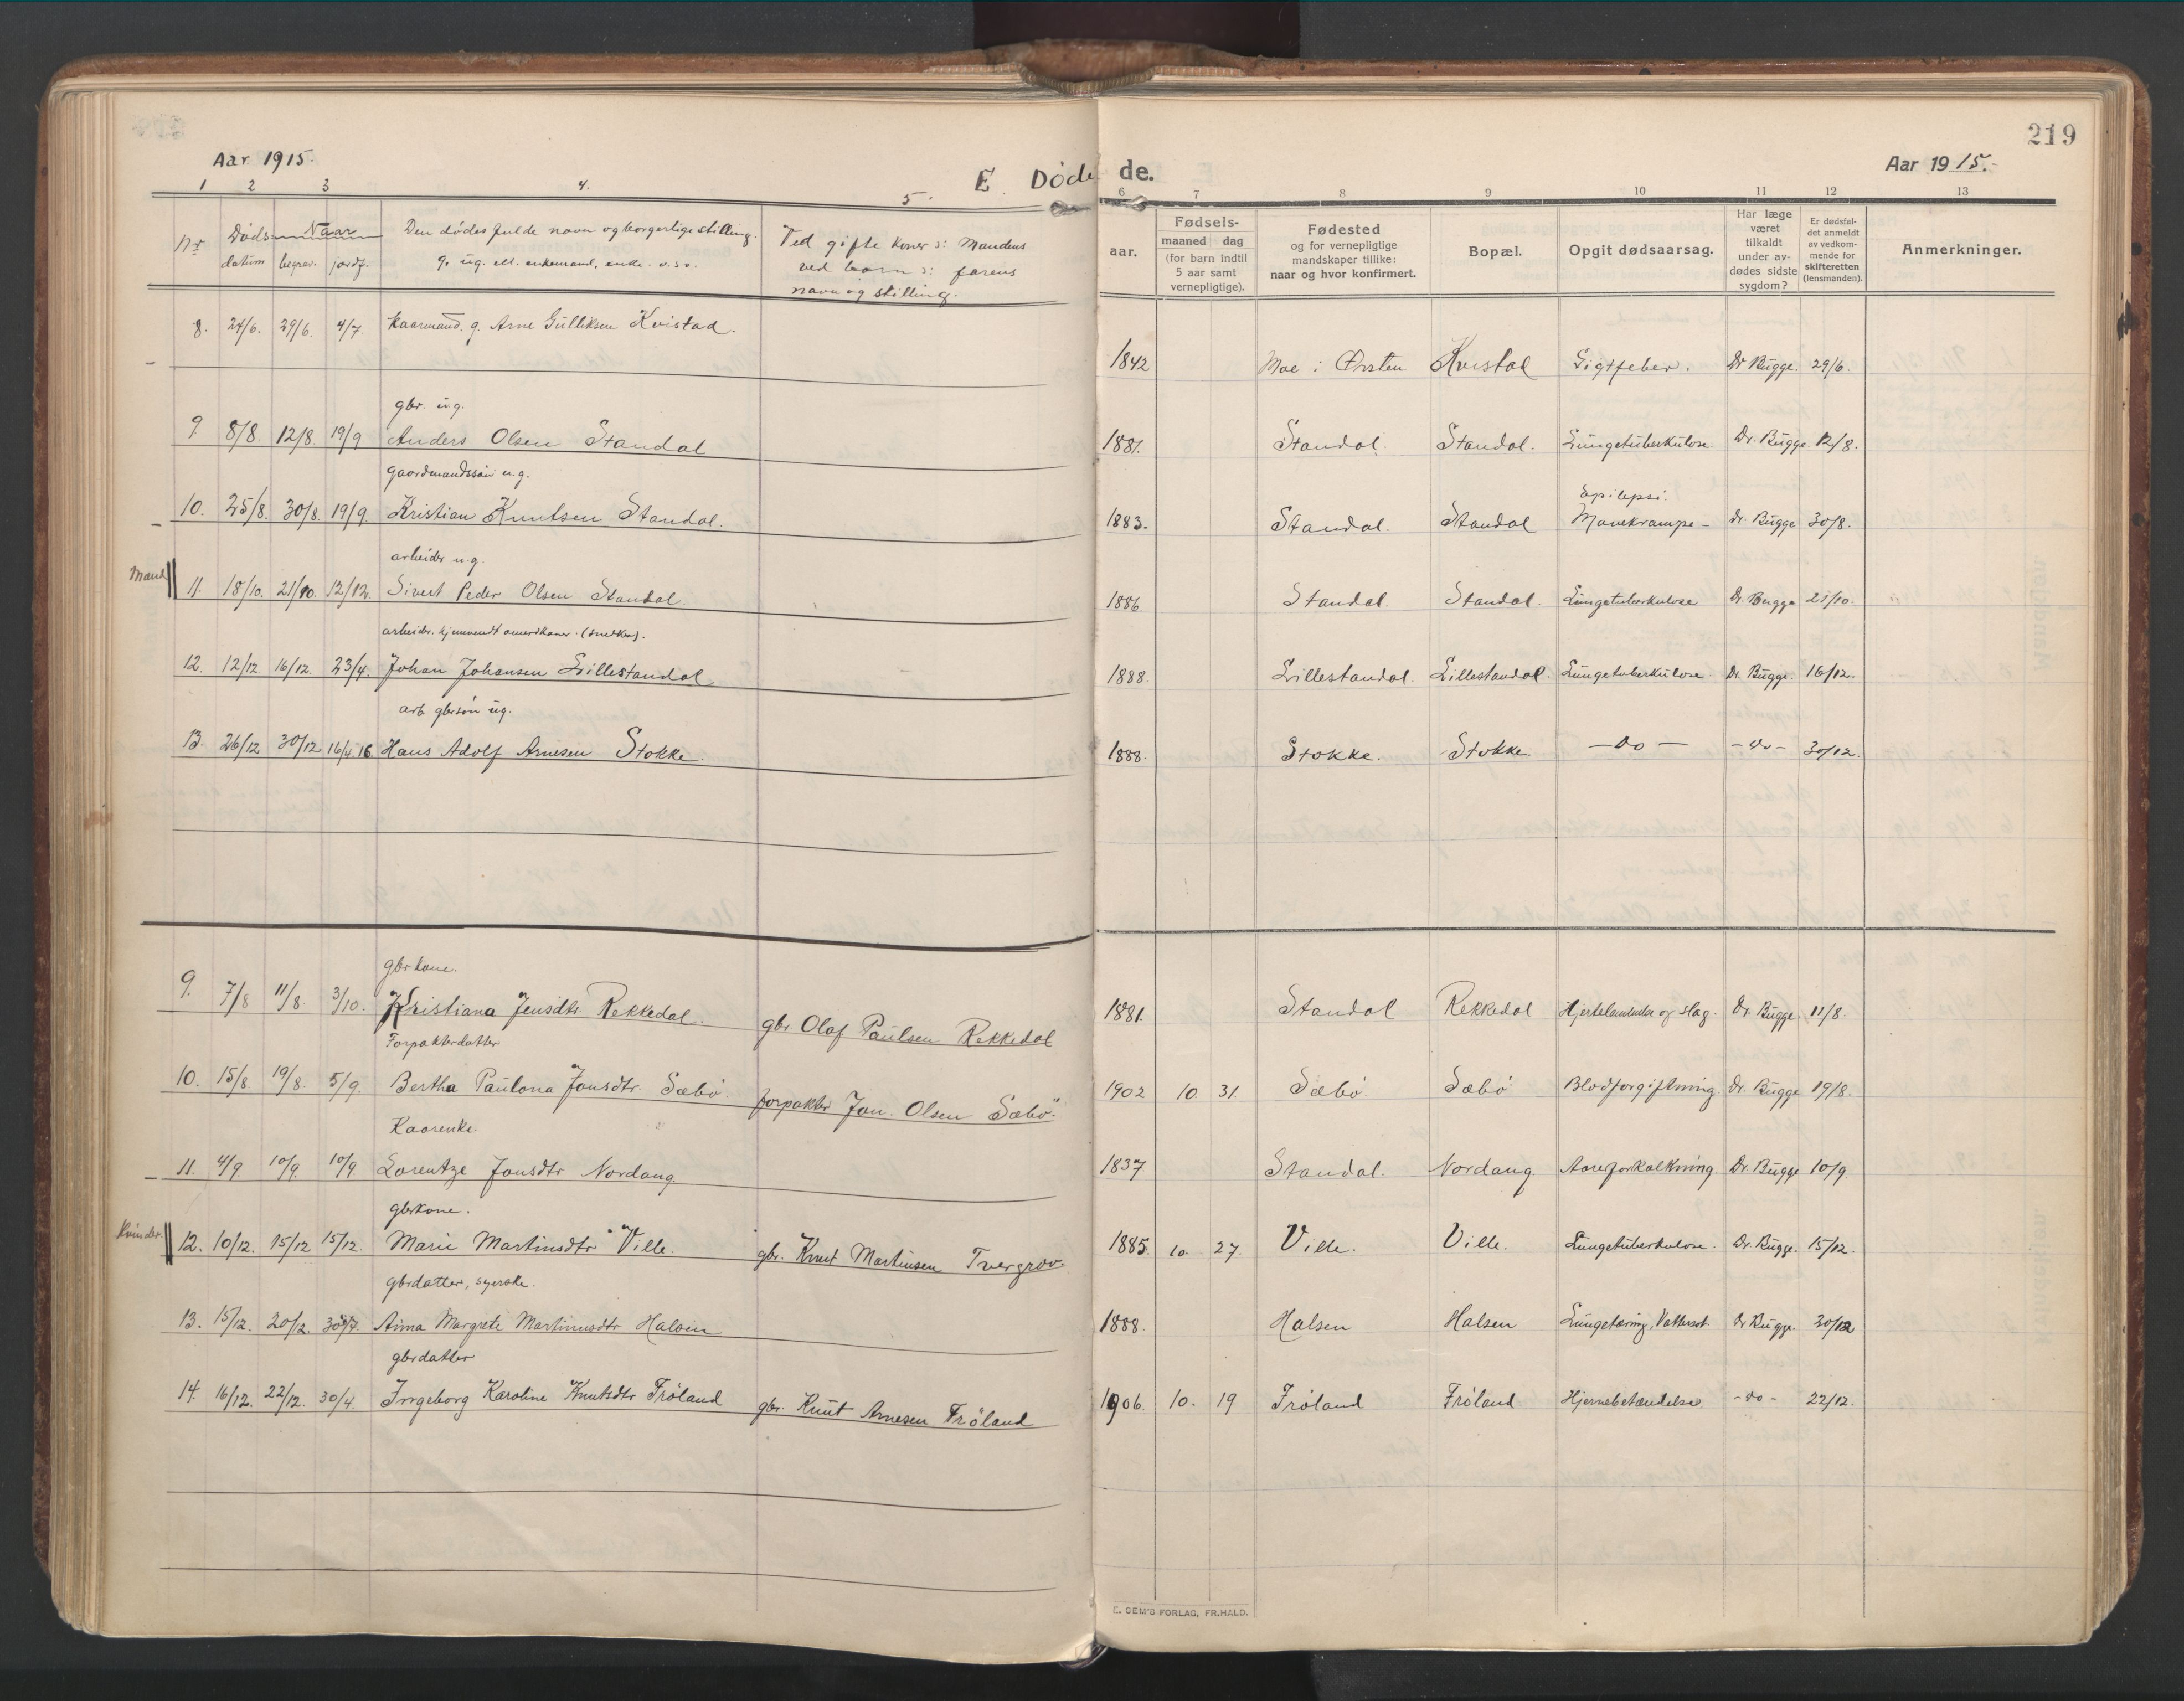 219
Aar 1915.
E. Døde de.
Aar 1915.-
1 2 3 4. 5. 6 7 8 9 10 11 12 13
Nr Døds- Naar Den dødes fulde navn og borgerlige stilling. Ved gifte koner ɔ: Mandens
datum begrav. jordf. g. ug. ell. enkemand, enke. o.s.v. ved barn ɔ: farens
navn og stilling.
aar. Fødsels-
maaned dag
(for barn indtil
5 aar samt
vernepligtige).
Fødested
og for vernepligtige
mandskaper tillike:
naar og hvor konfirmert.
Bopæl.
Opgit dødsaarsag.
Har læge
været
tilkaldt
under av-
dødes sidste
sygdom?
Er dødsfal-
det anmeldt
av vedkom-
mende for
skifteretten
(lensmanden).
Anmerkninger.
8. 24/6. 29/6. 4/7. Kaarmand. g. Arne Gulliksen Kvistad. 1842 Moe i Ørsten Kvistad Gigtfeber. Dr Bugge. 29/6.
gbr. ug.
9 8/8. 12/8. 19/9 Anders Olsen Standal 1881. Standal. Standal. Lungetuberkulose. Dr. Bugge. 12/8.
gaardmandssøn u.g.
Epilepsi.
10. 25/8. 30/8. 19/9. Kristian Knutsen Standal. 1883. Standal. Standal Manekrampe- Dr. Bugge 30/8.
arbeider u.g.
Mænd 11. 18/10. 21/10. 12/12. Sivert Peder Olsen Standal. 1886. Standal. Standal. Lungetuberkulose Dr. Bugge 21/10.
arbeider. hjemvendt amerikaner. (snedker).
12. 12/12 16/12. 23/4. Johan Johansen Lillestandal 1888. Lillestandal. Lillestandal. Lungetuberkulose. Dr. Bugge. 16/12.
arb. gbrsøn ug.
13. 26/12 30/12 16/4.16 Hans Adolf Arnesen Stokke. 1888. Stokke. Stokke. -do- -do- 30/12.
gbrkone.
9. 7/8 11/8. 3/10. Kristiana Jensdtr Rekkedal. gbr Olaf Paulsen Rekkedal 1881. Standal Rekkedal Hjertelammelse og slag. Dr. Bugge. 11/8.
Forpakterdatter
10. 15/8. 19/8. 5/9. Bertha Paulona Jonsdtr. Sæbø. forpakter Jon. Olsen Sæbø. 1902 10. 31. Sæbø. Sæbø Blodforgiftning. Dr. Bugge 19/8.
Kaarenke.
11. 4/9. 10/9. 10/9. Lorentze Jonsdtr Nordang 1837. Standal. Nordang Aareforkalkning. Dr. Bugge 10/9.
gbrkone.
Kvinder 12. 10/12. 15/12 15/12. Marie Martinsdtr Ville. gbr. Knut Martinsen Tvergrov. 1885. 10. 27. Ville. Ville. Lungetuberkulose. Dr. Bugge. 15/12.
gbrdatter, syerske.
13. 15/12. 20/12. Anna Margrete Martinusdtr Halsen 1888. Halsen Halsen Lungetæring, Vattersot. Dr Bugge. 30/12
gbrdatter
14. 16/12. 22/12. 30/4. Ingeborg Karoline Knutsdtr Frøland gbr. Knut Arnesen Frøland 1906. 10. 19 Frøland Frøland Hjernebetændelse -do- 22/12.
E. SEM'S FORLAG, FR.HALD.